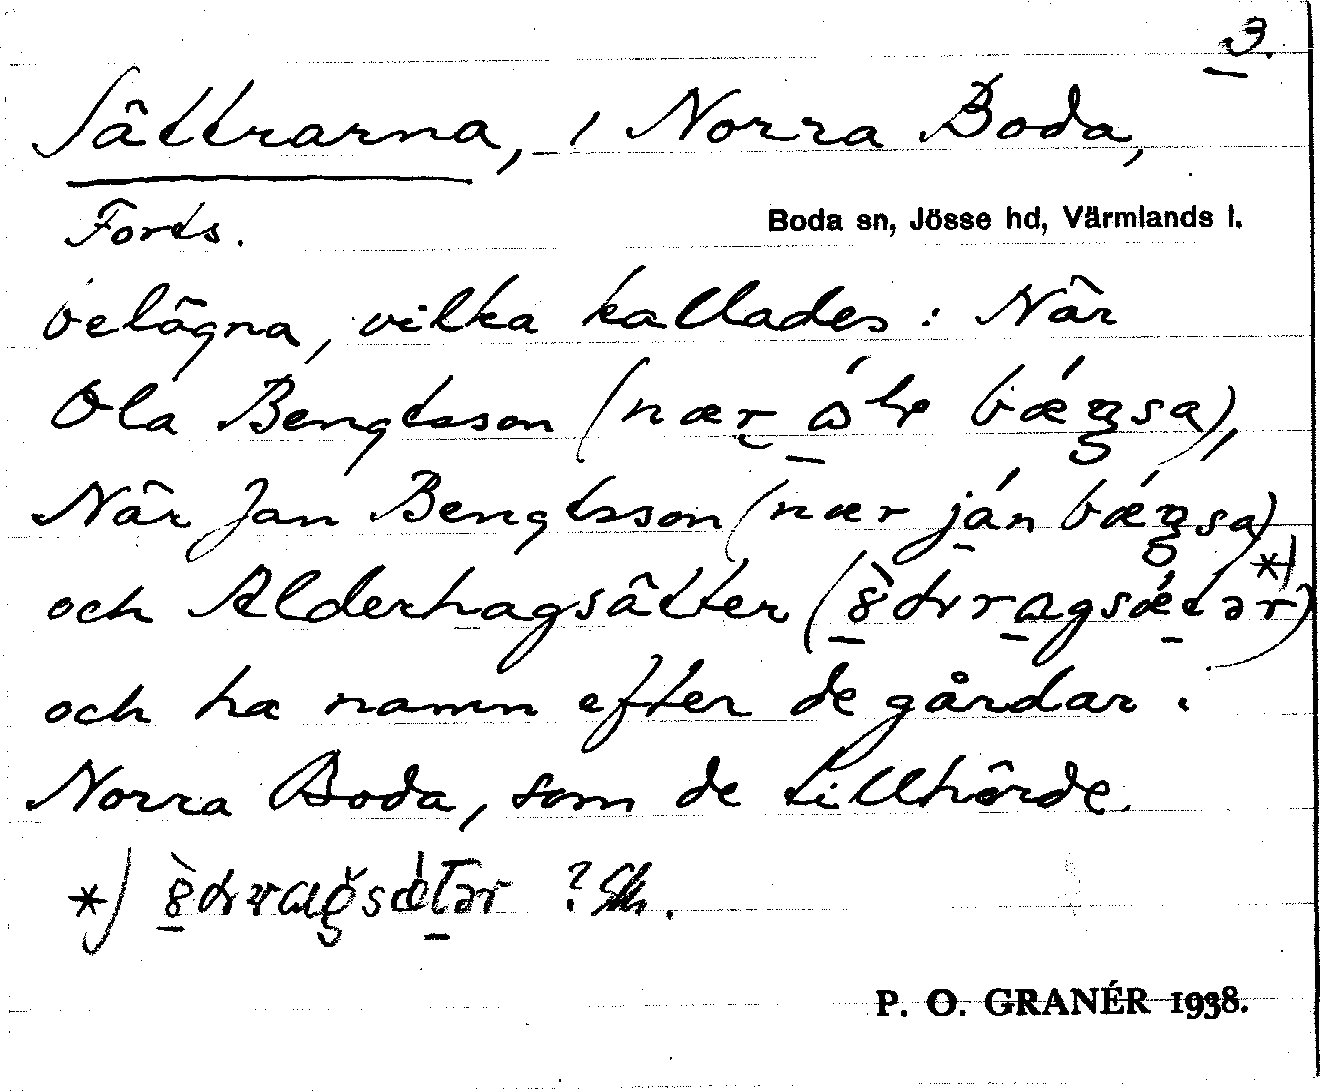 3.
Sättrarna, i Norra Boda,
Forts.
Boda sn, Jösse hd, Värmlands l.
belägna, vilka kallades: När
Ola Bengtsson (nær
När Jan Bengtsson (nær ján
och Alderhagsätter *)
och ha namn efter de gårdar i
Norra Boda, som de tillhörde.
*) ?
P. O. GRANÉR 1938.